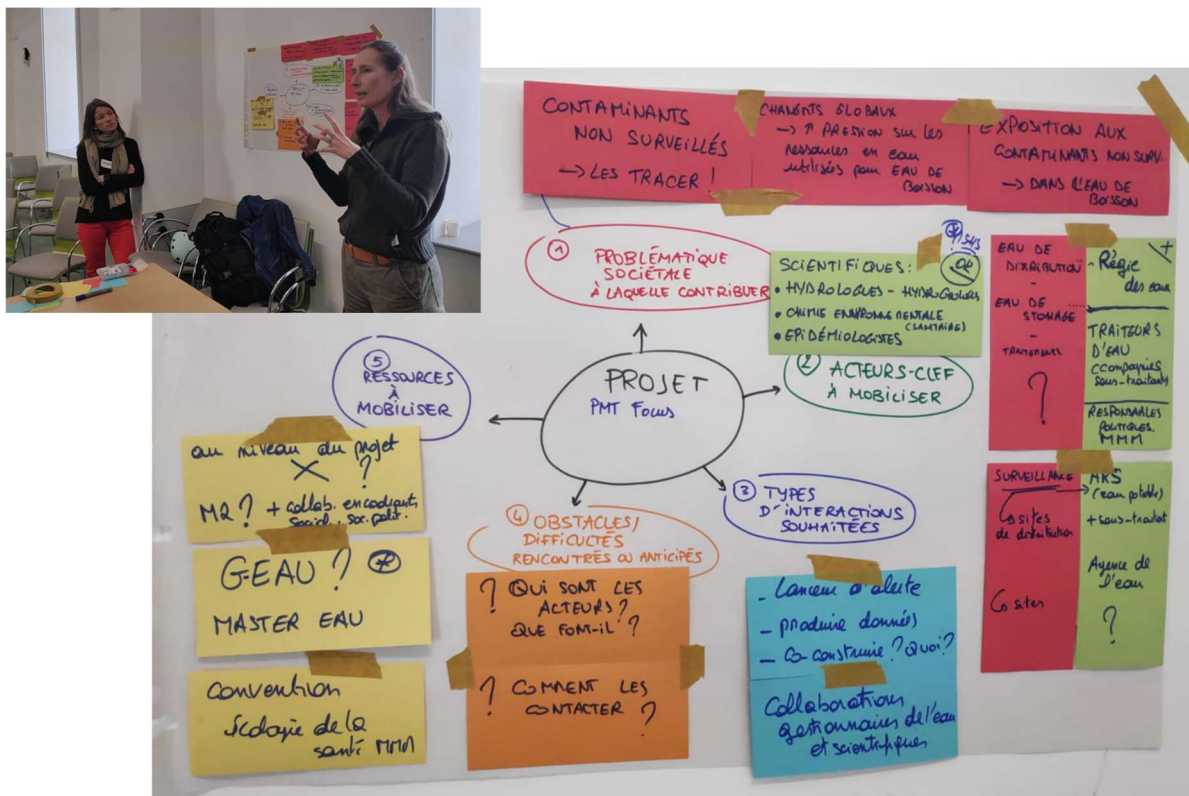 CONTAMINANTS
NON SURVEILLÉS
→ LES TRACER !
CHANGMTS GLOBAUX
→ ↑ PRESSION SUR LES
RESSOURCES EN EAU
utilisées pour EAU DE
BOISSON
EXPOSITION AUX
CONTAMINANTS NON SURV.
→ DANS L'EAU DE
BOISSON
① PROBLÉMATIQUE
SOCIÉTALE
À LAQUELLE CONTRIBUER
SHS
SCIENTIFIQUES :
• HYDROLOGUES - HYDROGÉOLOGUES
• CHIMIE ENVIRONNEMENTALE
(SANITAIRE)
• EPIDÉMIOLOGISTES
② ACTEURS-CLEF
À MOBILISER
EAU DE
DISTRIBUTION
-
EAU DE
STOCKAGE
-
TRAITEMENT
?
+
- Régie
des eaux
TRAITEURS
D'EAU
(compagnies
sous-traitants
RESPONSABLES
POLITIQUES
MMM
SURVEILLANCE
sites
de distribution
sites
(eau potable)
+ sous-traitant
Agence de
l'eau
?
PROJET
PMT Focus
③ TYPES
D'INTERACTIONS
SOUHAITÉES
- Lanceur d'alerte
- produire données
- Co-construire ? Quoi ?
Collaborations
gestionnaires de l'eau
et scientifiques
④ OBSTACLES/
DIFFICULTÉS
RENCONTRÉS OU ANTICIPÉS
? QUI SONT LES
ACTEURS ?
QUE FONT-IL ?
? COMMENT LES
CONTACTER ?
⑤ RESSOURCES
À
MOBILISER
au niveau du projet
X ?
M2 ? + collab. encadrants
sociol., soc. polit.
G-EAU ?
MASTER EAU
Convention
écologie de la
santé MMM